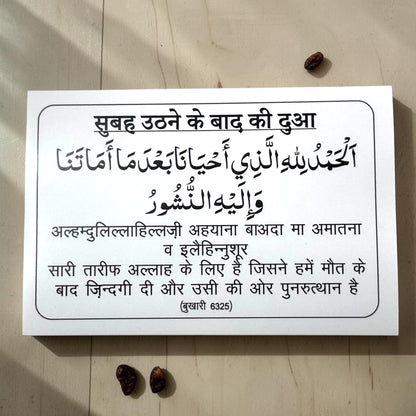 सुबह उठने के बाद की दुआ
اَلْحَمْدُ لِلّٰهِ الَّذِي أَحْيَانَا بَعْدَ مَا أَمَاتَنَا
وَإِلَيْهِ النُّشُورُ
अल्हम्दुलिल्लाहिल्लज़ी अहयाना बाअदा मा अमातना
व इलैहिन्नुशूर
सारी तारीफ अल्लाह के लिए है जिसने हमें मौत के
बाद ज़िन्दगी दी और उसी की ओर पुनरुत्थान है
(बुखारी 6325)